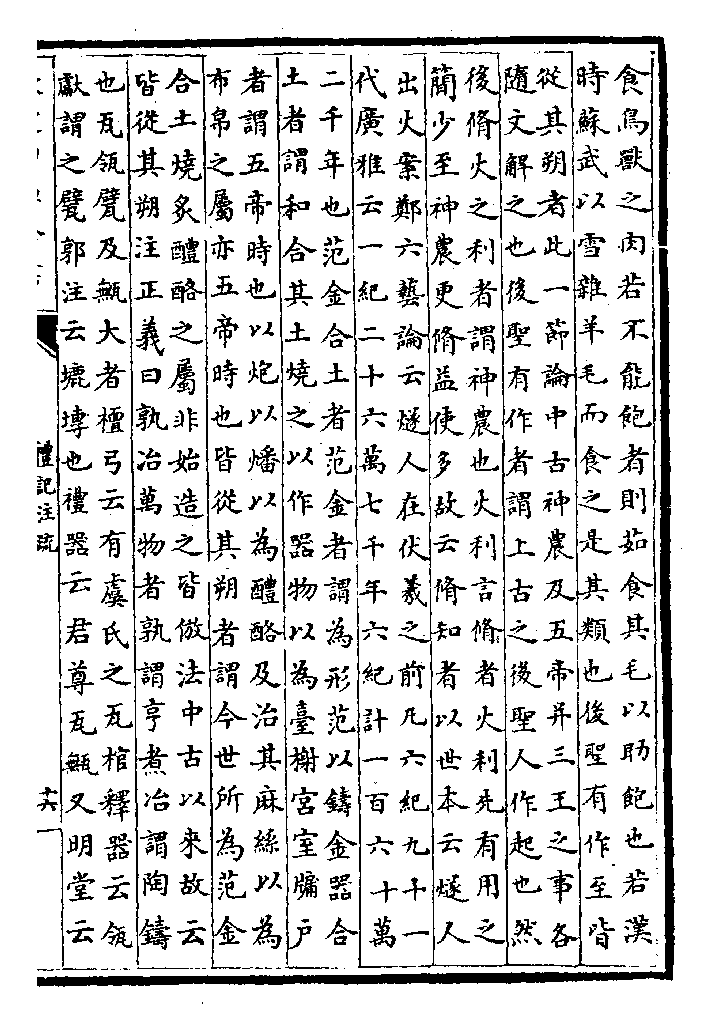 食鳥獸之肉若不能飽者則茹食其毛以助飽也若漢
時蘇武以雪雜羊毛而食之是其類也後聖有作至皆
從其朔者此一節論中古神農及五帝并三王之事各
隨文解之也後聖有作者謂上古之後聖人作起也然
後脩火之利者謂神農也火利言脩者火利先有用之
簡少至神農更脩益使多故云脩知者以世本云燧人
出火案鄭六藝論云燧人在伏羲之前凡六紀九十一
代廣雅云一紀二十六萬七千年六紀計一百六十萬
二千年也范金合土者范金者謂為形范以鑄金器合
土者謂和合其土燒之以作器物以為臺榭宮室牖戶
者謂五帝時也以炮以燔以為醴酪及治其麻絲以為
布帛之屬亦五帝時也皆從其朔者謂今世所為范金
合土燒炙醴酪之屬非始造之皆倣法中古以來故云
皆從其朔注正義曰孰冶萬物者孰謂亨煮冶謂陶鑄
也瓦瓴甓及甒大者檀弓云有虞氏之瓦棺釋器云瓴
獻謂之甓郭注云塶塼也禮器云君尊瓦甒又明堂云
禮記注疏
十六